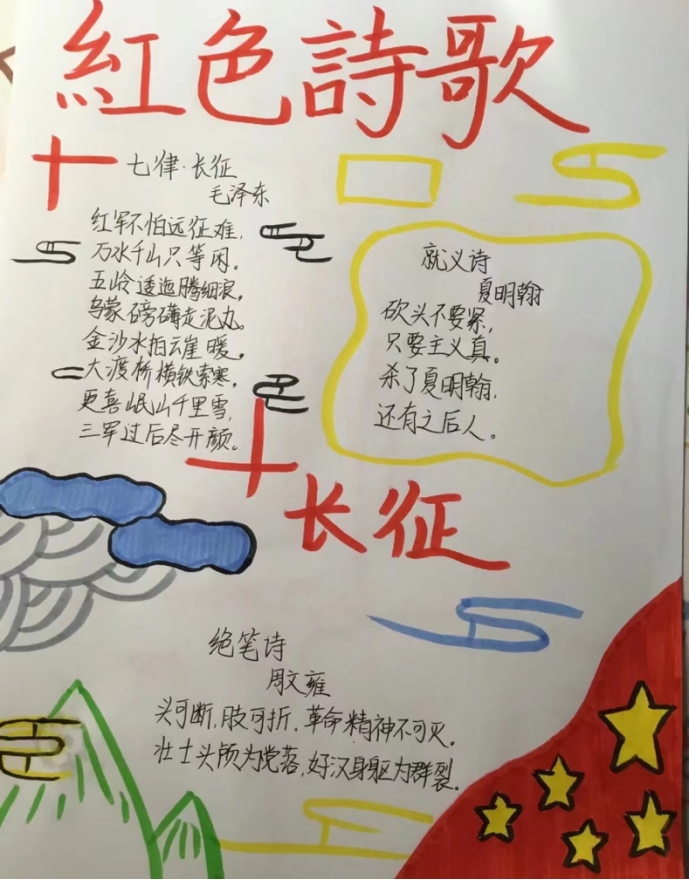 紅色詩歌
七律·长征
毛泽东
红军不怕远征难,
万水千山只等闲。
五岭逶迤腾细浪,
乌蒙磅礴走泥丸。
金沙水拍云崖暖,
大渡桥横铁索寒。
更喜岷山千里雪,
三军过后尽开颜。
就义诗
夏明翰
砍头不要紧,
只要主义真。
杀了夏明翰,
还有之后人。
长征
绝笔诗
周文雍
头可断,肢可折,革命精神不可灭。
壮士头颅为党落,好汉身躯为群裂。